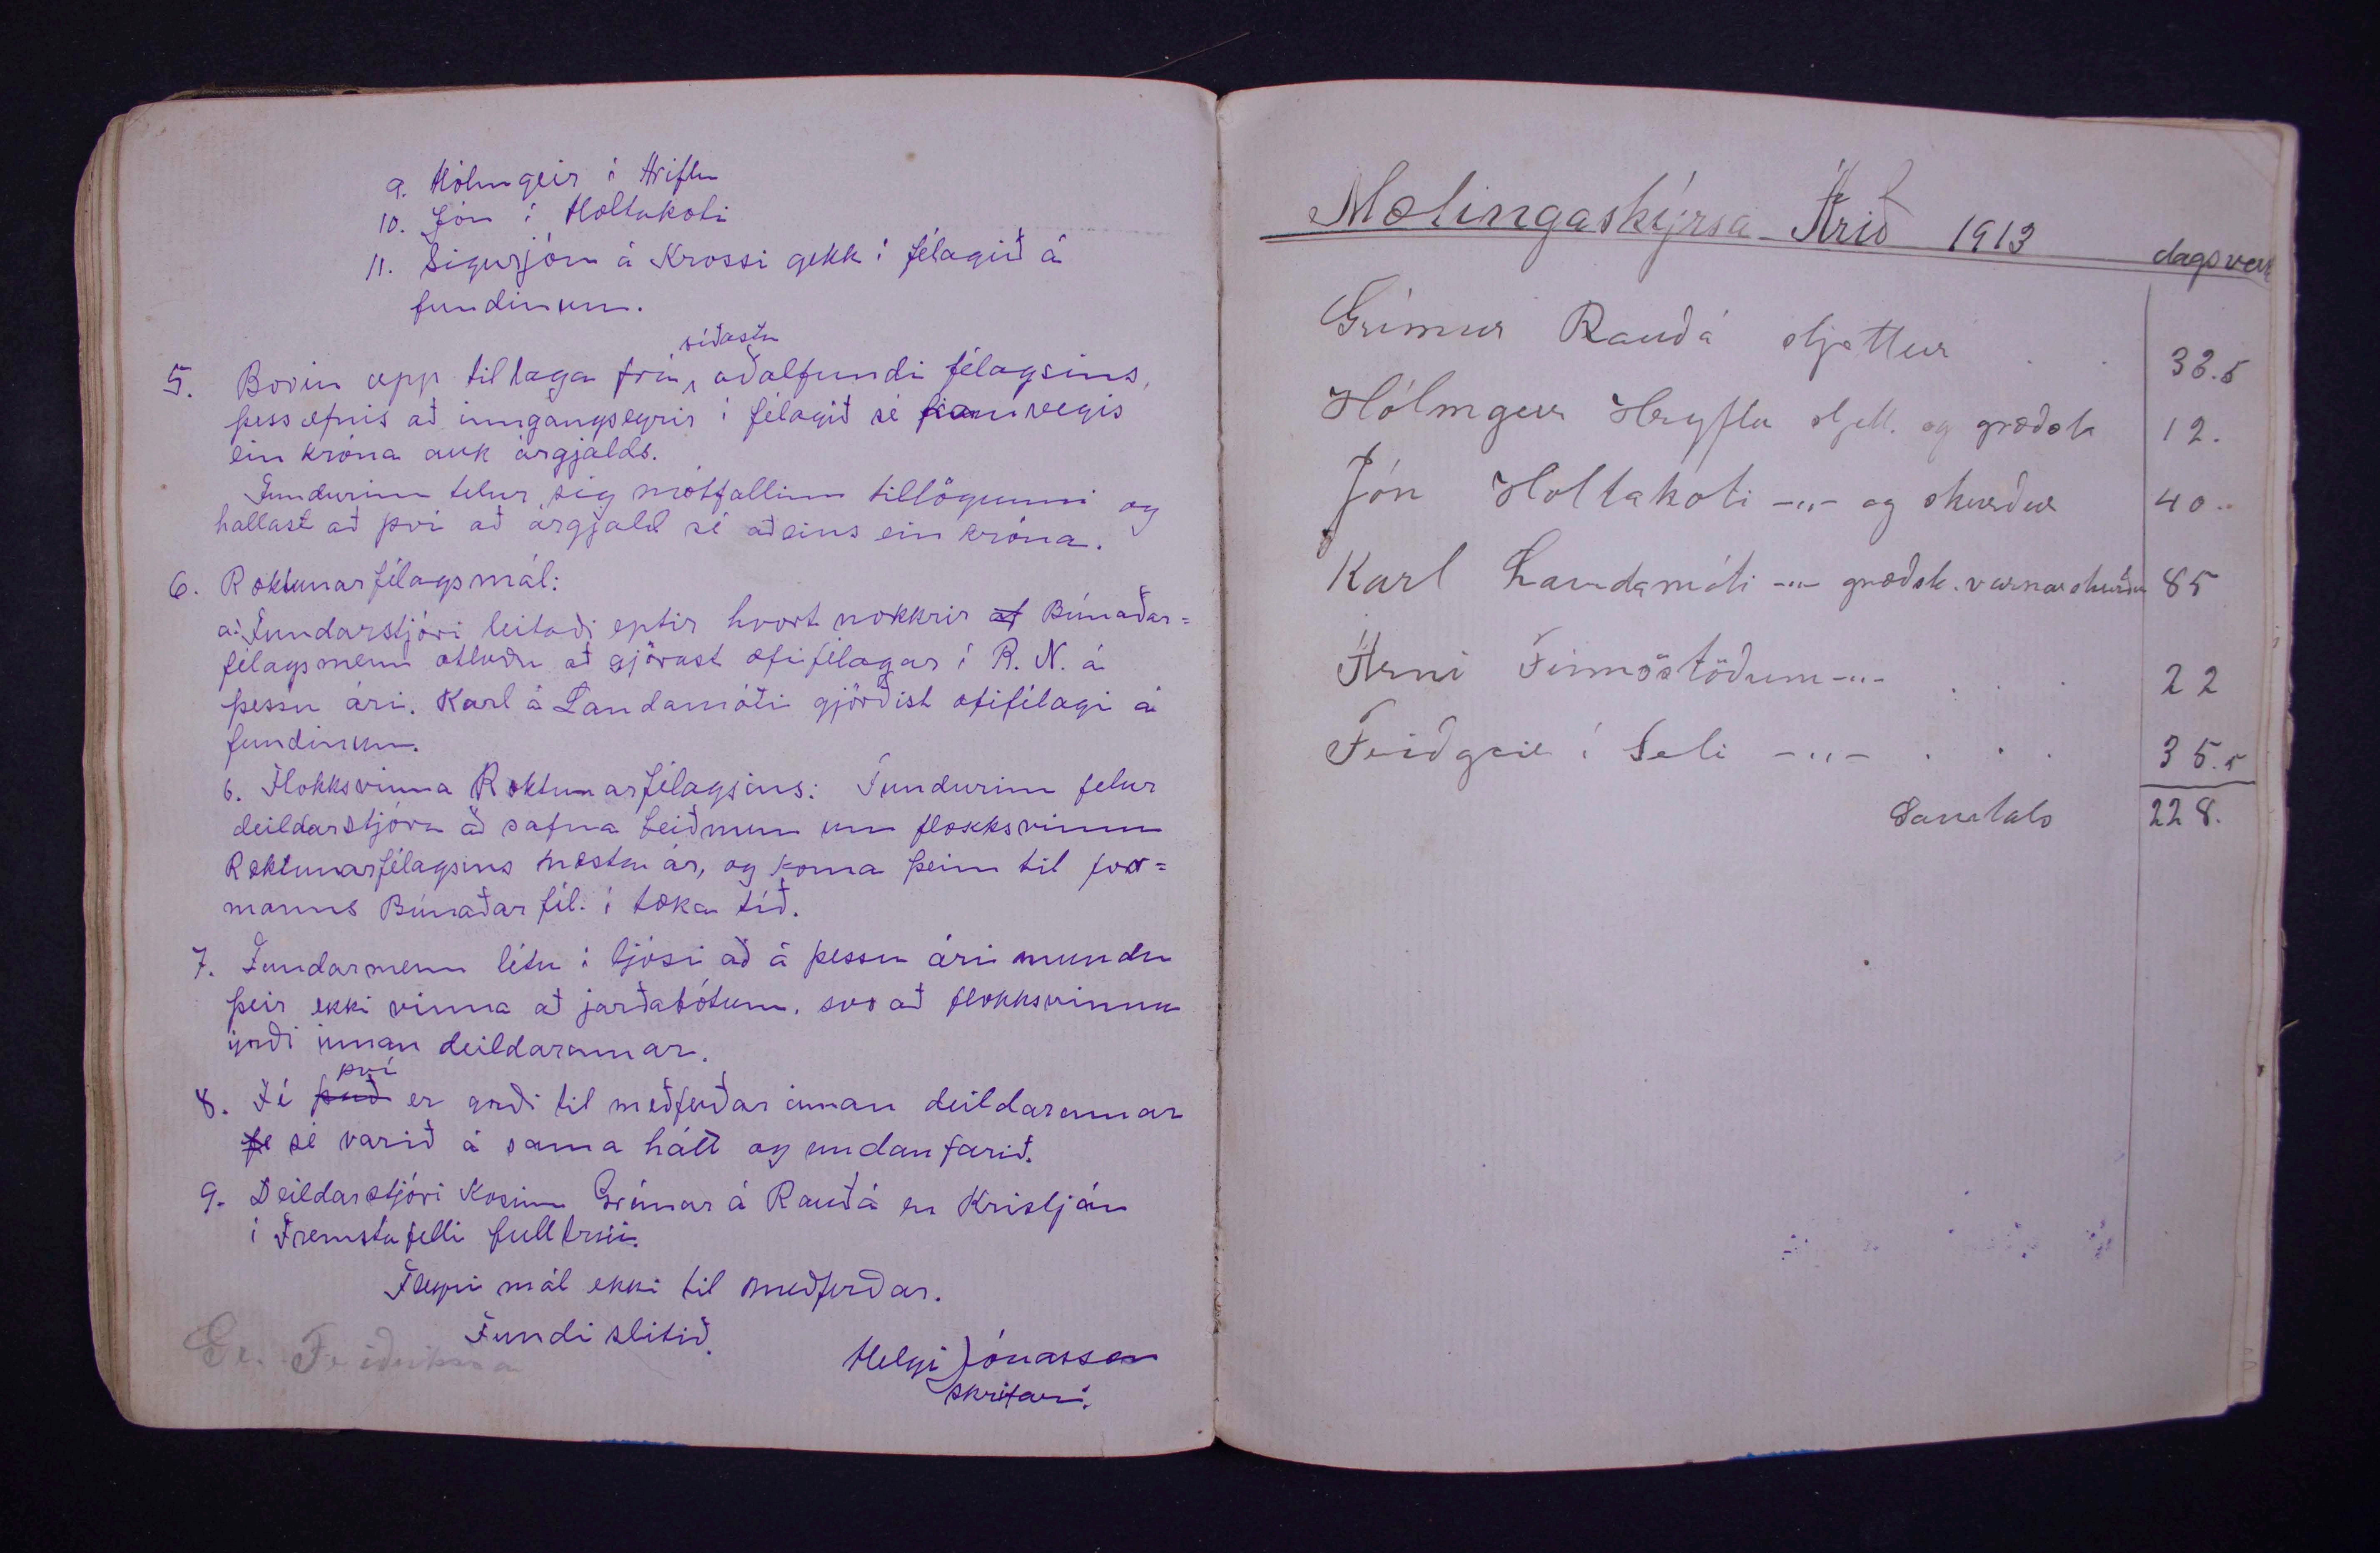 9. Hólmgeir í Hriflu
10. Jón í Holtakoti
11. Sigurjón á Krossi gekk í félagið á
fundinum.
síðasta
5. Borin upp tillaga frá aðalfundi félagsins,
þess efnis að inngangseyrir í félagið sé framvegis
ein króna auk árgjalds.
Fundurinn telur sig mótfallinn tillögunni og
hallast að því að árgjald sé aðeins ein króna.
6. Ræktunarfélagsmál:
a. Fundarstjóri leitaði eptir hvort nokkrir af Búnaðar=
félagsmenn ætluðu að gjörast æfifélagar í R. N. á
þessu ári. Karl á Landamóti gjörðist æfifélagi á
fundinum.
b. Flokksvinna Ræktunarfélagsins: Fundurinn felur
deildarstjóra að safna beiðnum um flokksvinnu
Ræktunarfélagsins næsta ár, og koma þeim til for=
manns Búnaðarfél. í tæka tíð.
7. Fundarmenn létu í ljósi að á þessu ári mundu
þeir ekki vinna að jarðabótum, svo að flokksvinna
yrði innan deildarinnar.
því
8. Fé það er yrði til meðferðar innan deildarinnar
fe sé varið á sama hátt og undanfarið.
9. Deildarstjóri kosinn Grímur á Rauðá en Kristján
í Fremstafelli fulltrúi.
Fleyri mál ekki til meðferðar.
Fundi slitið.
Helgi Jónasson
skrifari.
Mælingaskýrsa Árið 1913 dagsverk
Grímur Rauðá sljettur . . 33.5
Hólmgeir Hryflu sljett. og græðsla 12.
Jón Holtakoti -"- og skurður 40..
Karl Landamóti -"- græðsl. varnarskurður 85
Árni Finnsstöðum -"- . . . 22
Friðgeir í Seli -"- . . . 35.5
Samtals 228.